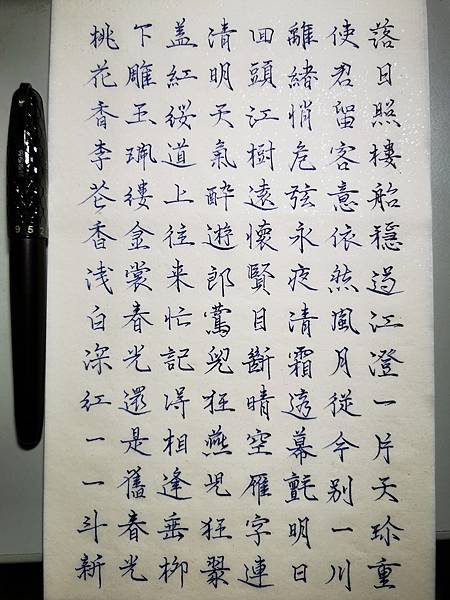 落日照樓船穩過江澄一片天珍重
使君留客意依然風月從今别一川
離緒悄危弦永夜清霜透幕氈明日
回頭江樹遠懷賢目斷晴空雁字連
清明天氣醉遊郎鶯兒狂燕児狂翠
盖紅纓道上往来忙記得相逢垂柳
下雕玉珮縷金裳春光還是舊春光
桃花香李花香浅白深紅一一斗新
952